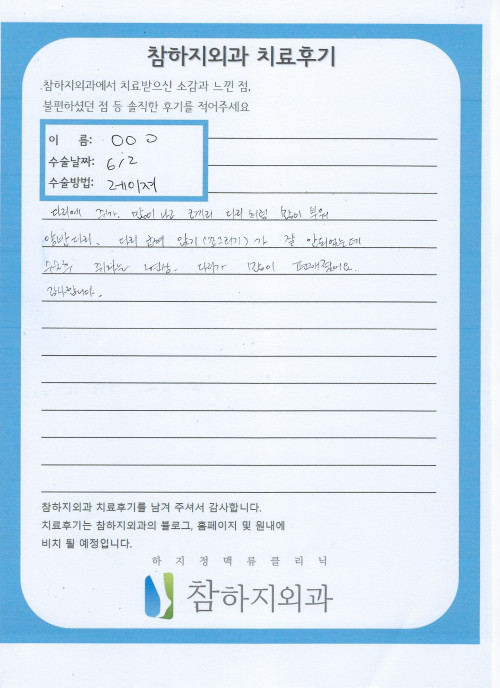 참하지외과 치료후기
참하지외과에서 치료받으신 소감과 느낀 점,
불편하셨던 점 등 솔직한 후기를 적어주세요
이 름: OOO
수술날짜: 6/2
수술방법: 레이져
다리에 쥐가 많이 나고 코끼리 다리처럼 많이 부워
양반다리. 다리 앉기(쪼그리기)가 잘 안되었는데
수술후 쥐나는 다리가 많이 편해졌어요.
감사합니다.
참하지외과 치료후기를 남겨 주셔서 감사합니다.
치료후기는 참하지외과의 블로그, 홈페이지 및 원내에
비치 될 예정입니다.
하지정맥류클리닉
참하지외과